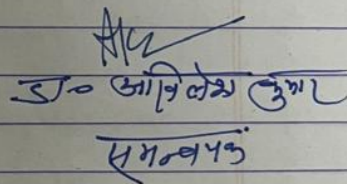 डा० अखिलेश कुमार
समन्वयक